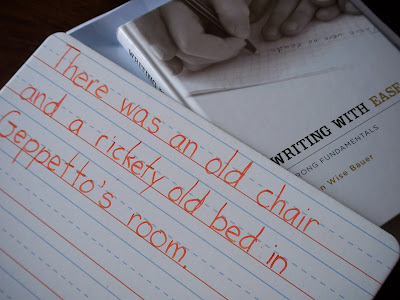 There was an old chair
and a rickety old bed in
Geppetto's room.
WRITING WITH EASE
STRONG FUNDAMENTALS
Wise Bauer